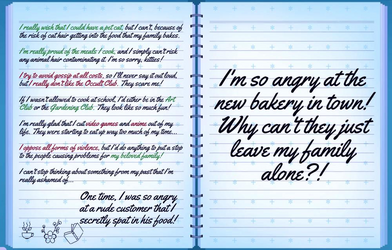 I really wish that I could have a pet cat, but I can't, because of
the risk of cat hair getting into the food that my family bakes.
I'm really proud of the meals I cook, and I simply can't risk
any animal hair contaminating it. I'm so sorry, kitties!
I try to avoid gossip at all costs, so I'll never say it out loud,
but I really don't like the Occult Club. They scare me!
If I wasn't allowed to cook at school, I'd either be in the Art
Club or the Gardening Club. They look like so much fun!
I'm really glad that I cut video games and anime out of my
life. They were starting to eat up way too much of my time...
I oppose all forms of violence, but I'd do anything to put a stop
to the people causing problems for my beloved family!
I can't stop thinking about something from my past that I'm
really ashamed of...
One time, I was so angry
at a rude customer that I
secretly spat in his food!
I'm so angry at the
new bakery in town!
Why can't they just
leave my family
alone?!